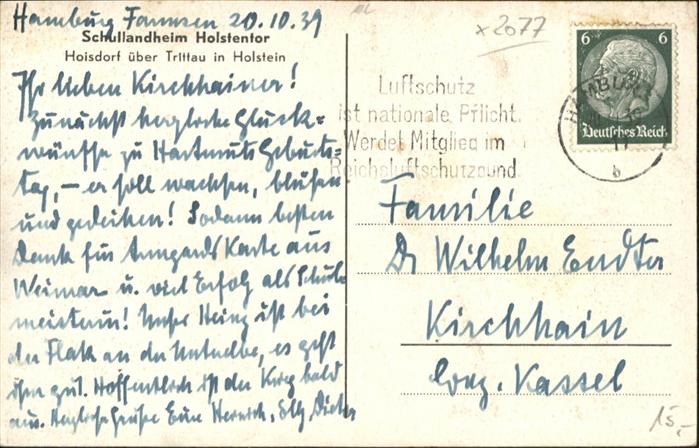 Hamburg Farmsen 20.10.39
Schullandheim Holstentor
Hoisdorf über Trittau in Holstein
Ihr lieben Kirchhainer!
Zunächst herzliche Glück=
wünsche zu Hartmuts Geburts-
tag, – er soll wachsen, blühen
und gedeihen! Sodann besten
Dank für Armgards Karte aus
Weimar u. viel Erfolg als Schul
meisterin! Unser Heinz ist bei
der Flak an der Unterelbe, es geht
ihm gut. Hoffentlich ist der Krieg bald
aus. Herzliche Grüße Eure Elly, Dieter
x 2077
Luftschutz
ist nationale Pflicht.
Werdet Mitglied im
Reichsluftschutzbund.
HAMBURG
b
6 6
Deutsches Reich
Familie
Dr Wilhelm Endter
Kirchhain
Bez. Kassel
15,-